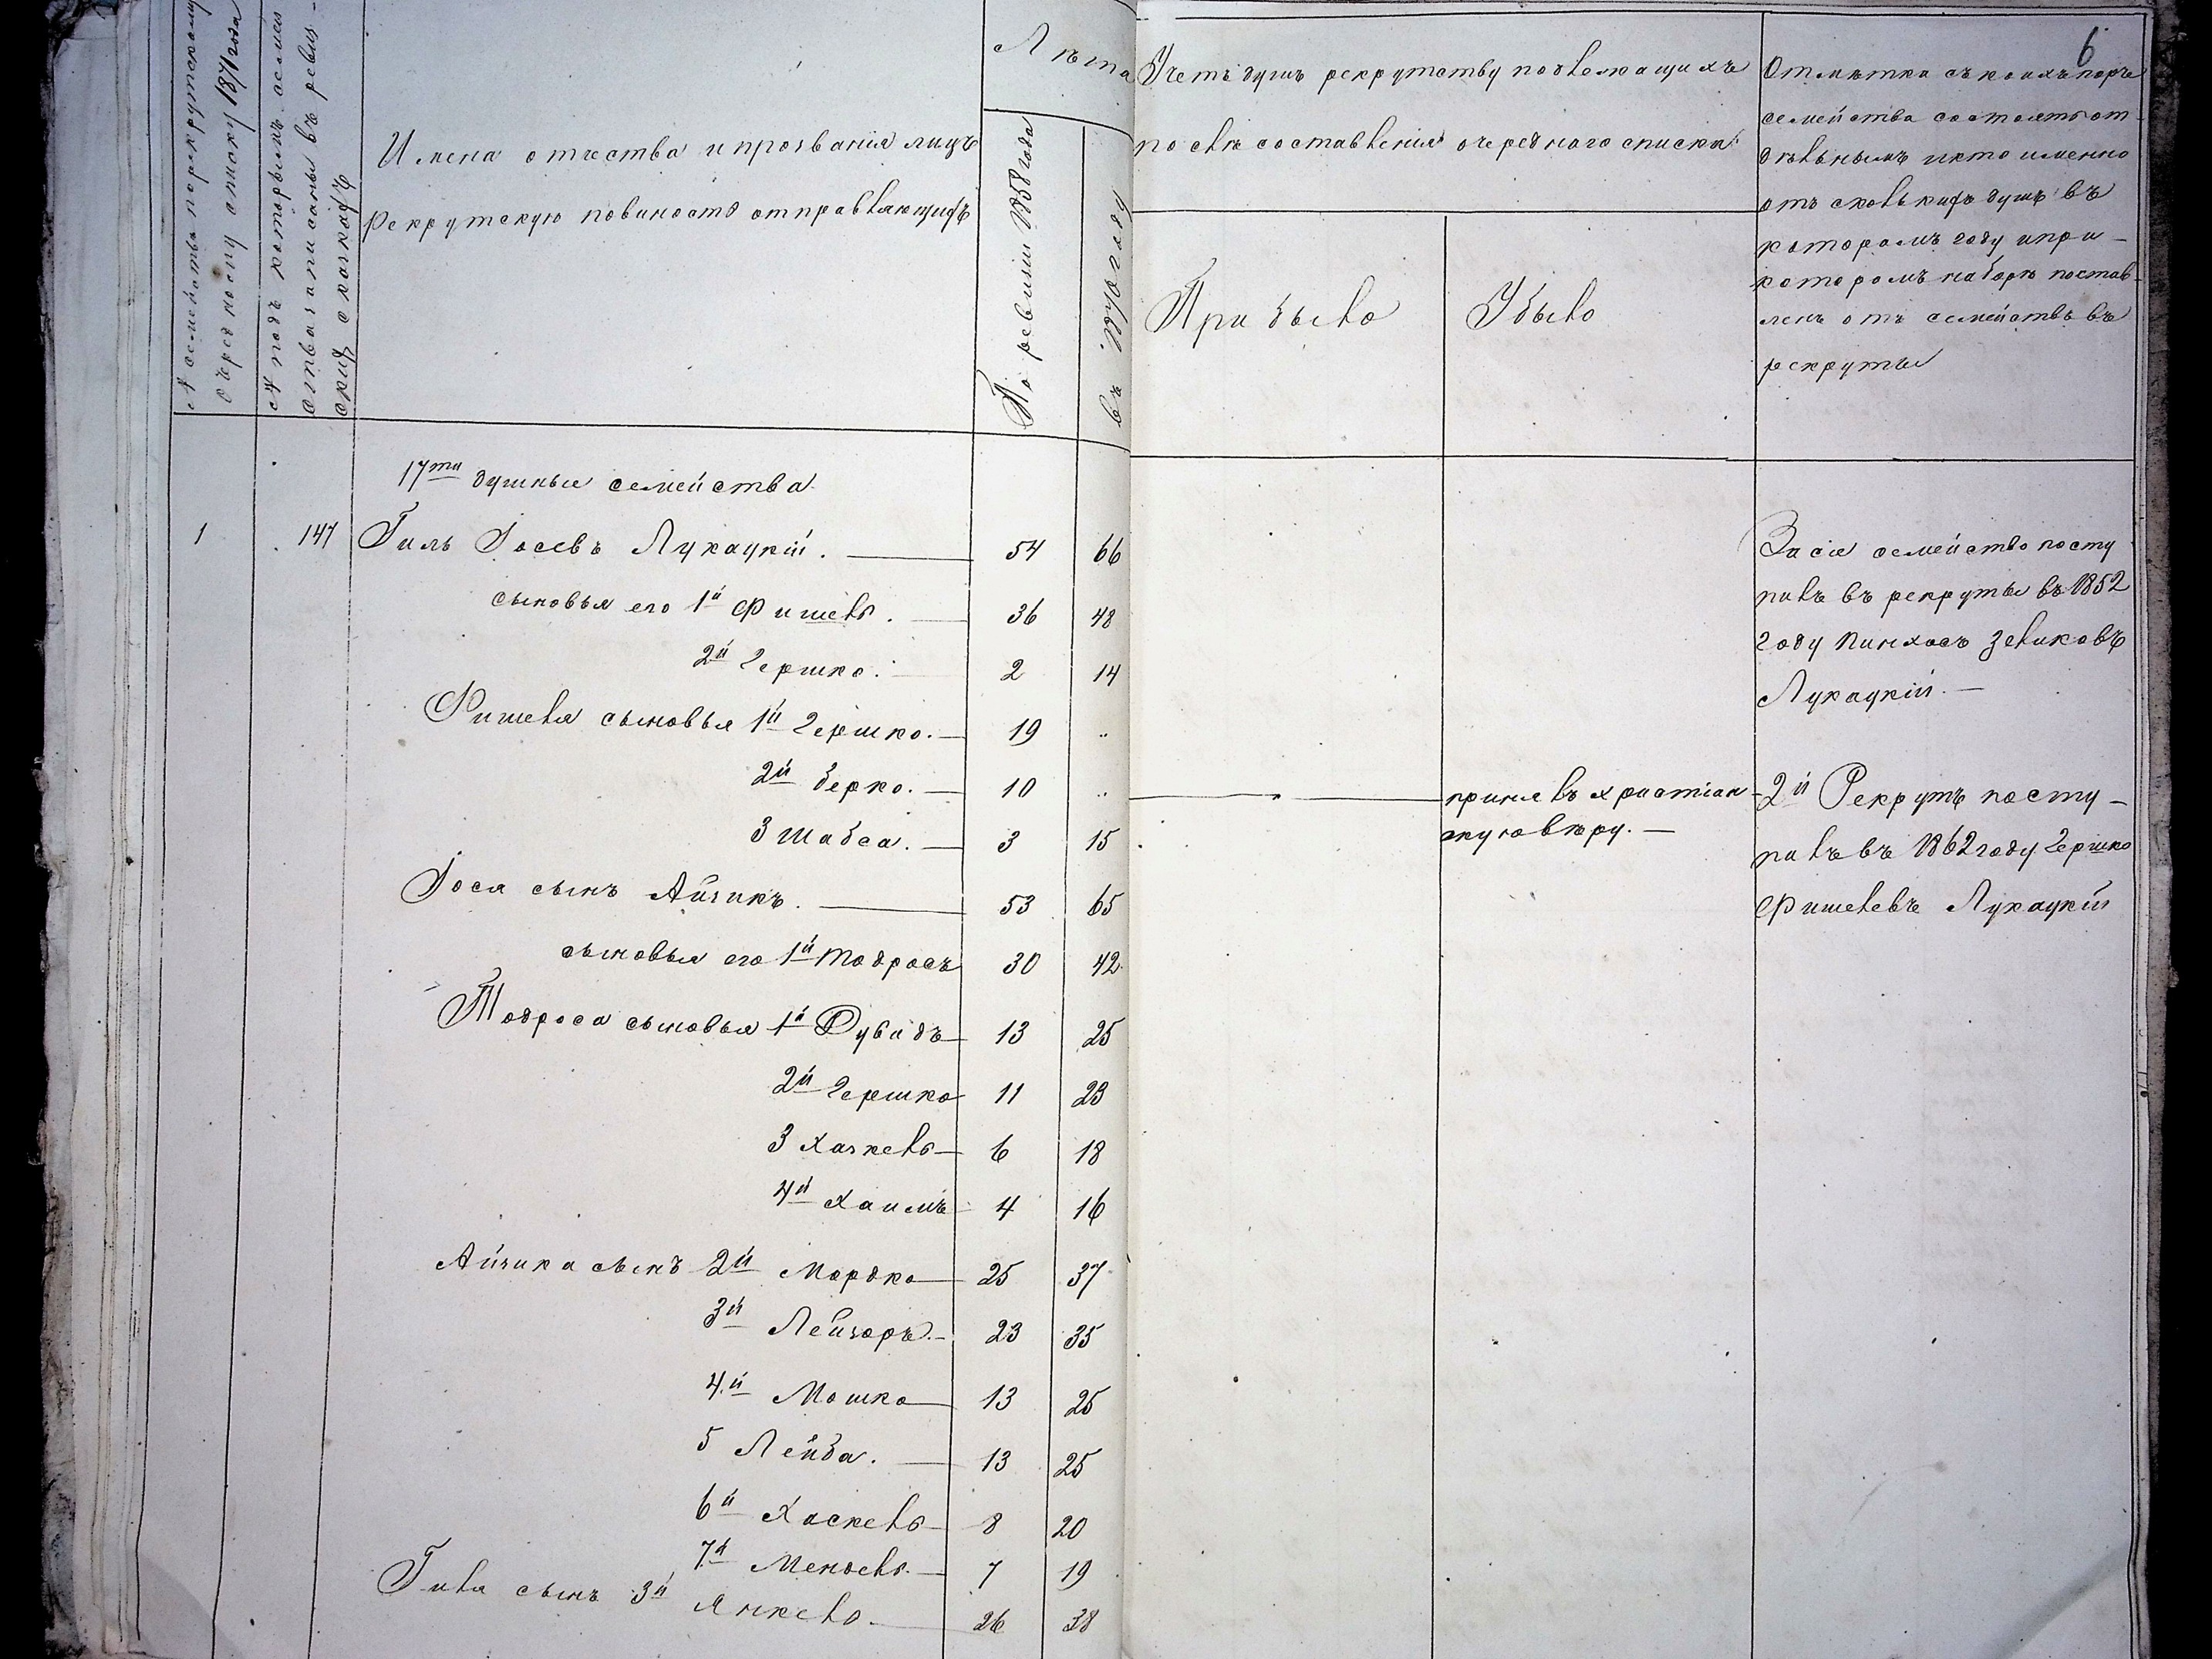 № семействъ порекрутскому
очередному списку 1871 года
№ подъ которымъ семей
ства записаны въ ревиз-
скихъ сказкахъ
Имена отчества и прозванія лицъ
рекрутскую повиность отправляющихъ
Лѣта
По ревизіи 1858 года
въ 1870 году
Учетъ душъ рекрутству подлежащихъ
послѣ составленія очереднаго списка
Прибыло
Убыло
6
Отмѣтка съ коихъ поръ
семейства состоятъ от
дѣльнымъ и кто именно
отъ сколькихъ душъ въ
которомъ году и при-
которомъ наборѣ постав
ленъ отъ семействъ въ
рекруты
17ти душныя семейства
1 147 Гиль Іосевъ Лукацкій. 54 66
сыновья его 1й Фишель. 36 48
2й Гершко. 2 14
Фишеля сыновья 1й Гершко. 19 ..
2й Берко. 10 ..
3 Шабса. 3 15
Іося сынъ Айзикъ. 53 65
сыновья его 1й Тодросъ 30 42
Тодроса сыновья 1й Рувидъ 13 25
2й Гершко 11 23
3 Хазкель 6 18
4й Хаимъ 4 16
Айзика сынъ 2й Мордко 25 37
3й Лейзоръ. 23 35
4й Мошко 13 25
5 Лейба. 13 25
6й Хаскель 8 20
7й Мендель. 7 19
Гиля сынъ 3й Янкель. 26 38
принялъ христіан
скую вѣру.
За сіе семейство посту
пилъ въ рекруты въ 1852
году Пинхосъ Зеликовъ
Лукацкій.
2й Рекрутъ посту-
пилъ въ 1862 году Гершко
Фишелевъ Лукацкій